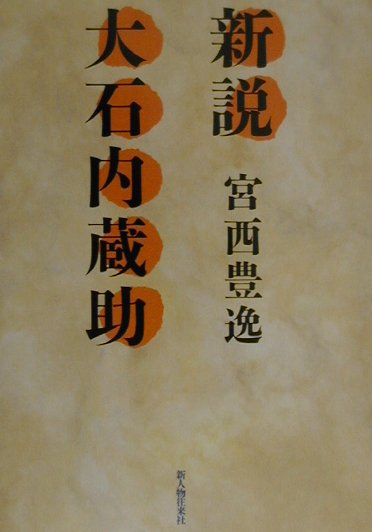 新説
大石内蔵助
宮西豊逸
新人物往来社